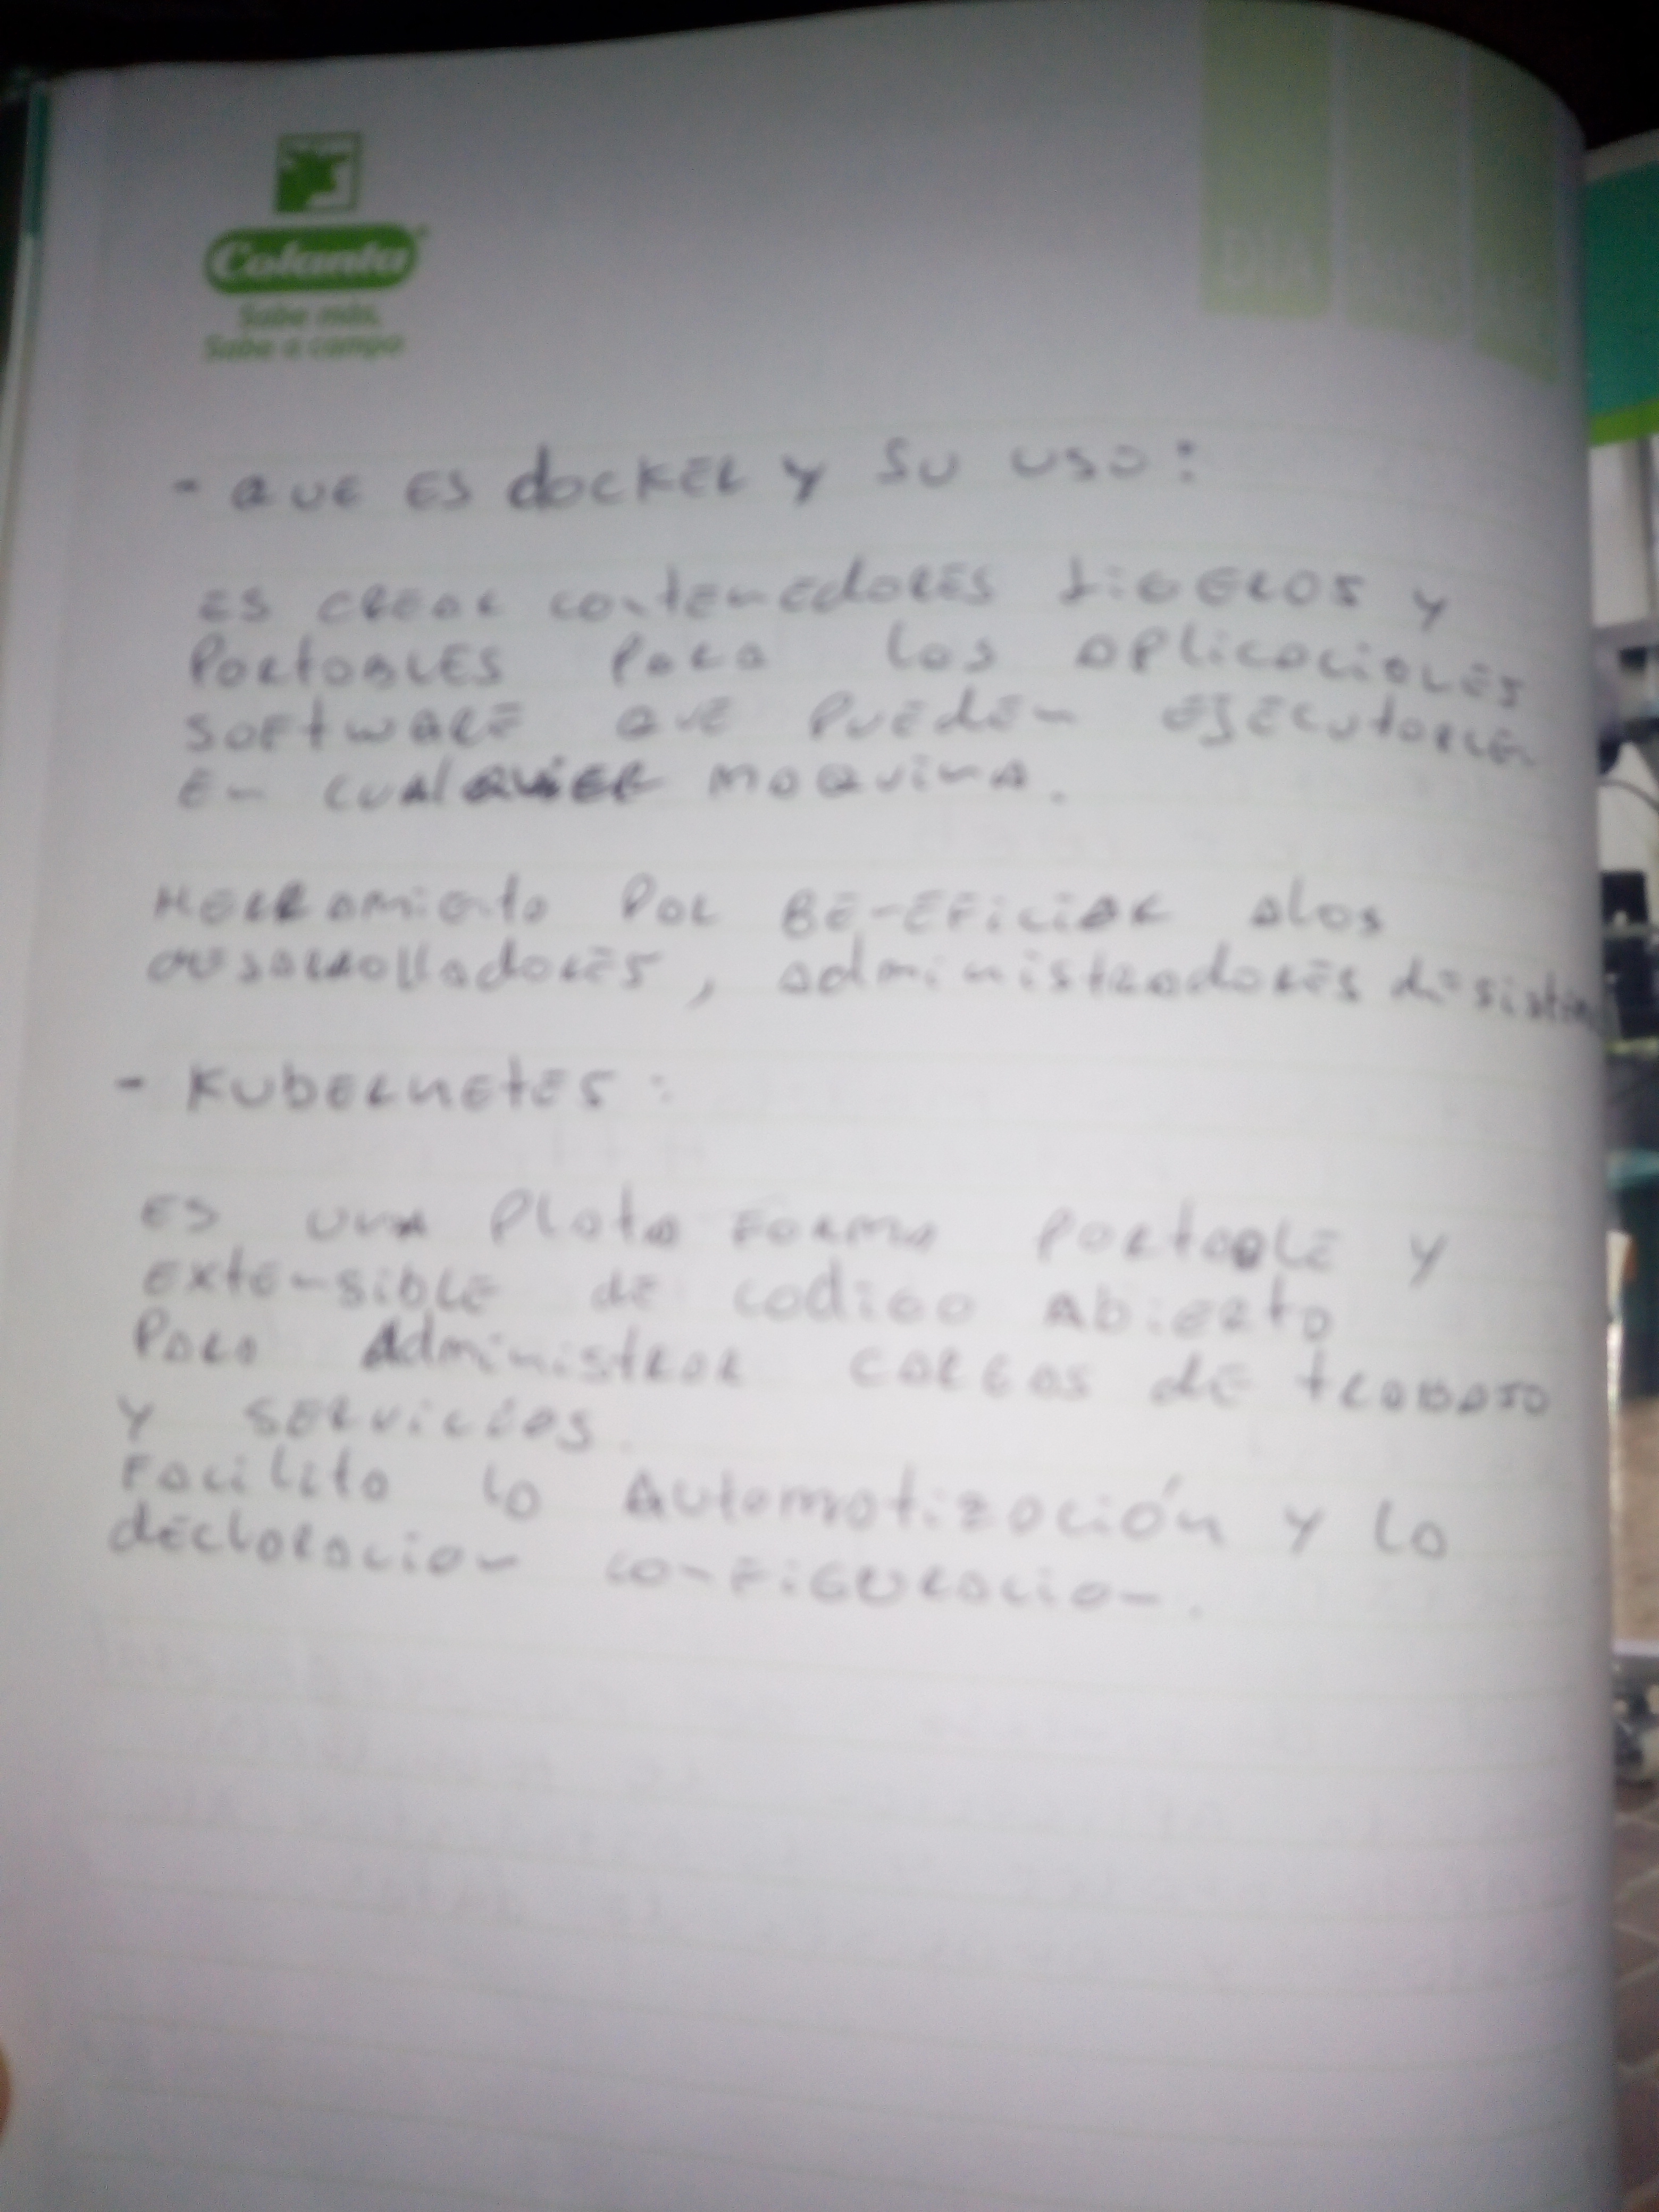 Colanta
Sabe más,
Sabe a campo
DÍA
- QUE ES dockER y SU USO:
ES CREAR contenedores ligeros y
Portables para las aplicaciones
software que pueden ejecutarse
En cualquier maquina.
Herramienta por beneficiar alos
desarrolladores, administradores de sistem
- Kubernetes:
ES una Plata forma portable y
extensible de codigo Abierto
Para Administrar cargas de trabajo
y servicios.
Facilita la Automatización y la
declaracion configuracion.